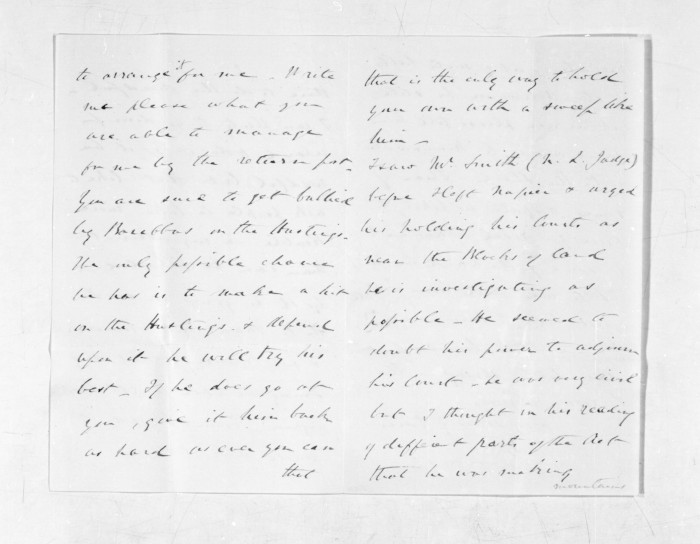 to arrange it for me - Write
me please what you
are able to manage
for me by the return post -
You are sure to get bullied
by Barabbas on the Hustings -
The only possible chance
he has is to make a hit
on the Hustings & depend
upon it he will try his
best - If he does go at
you, give it him back
as hard as ever you can
that
that is the only way to hold
your own with a sweep like
him -
I saw Mr. Smith (N. L. Judge)
before I left Napier & urged
his holding his Courts as
near the Blocks of land
he is investigating as
possible - He seemed to
doubt his power to adjourn
his Court - he was very civil
but I thought in his reading
of different parts of the Act
that he was making
mountains